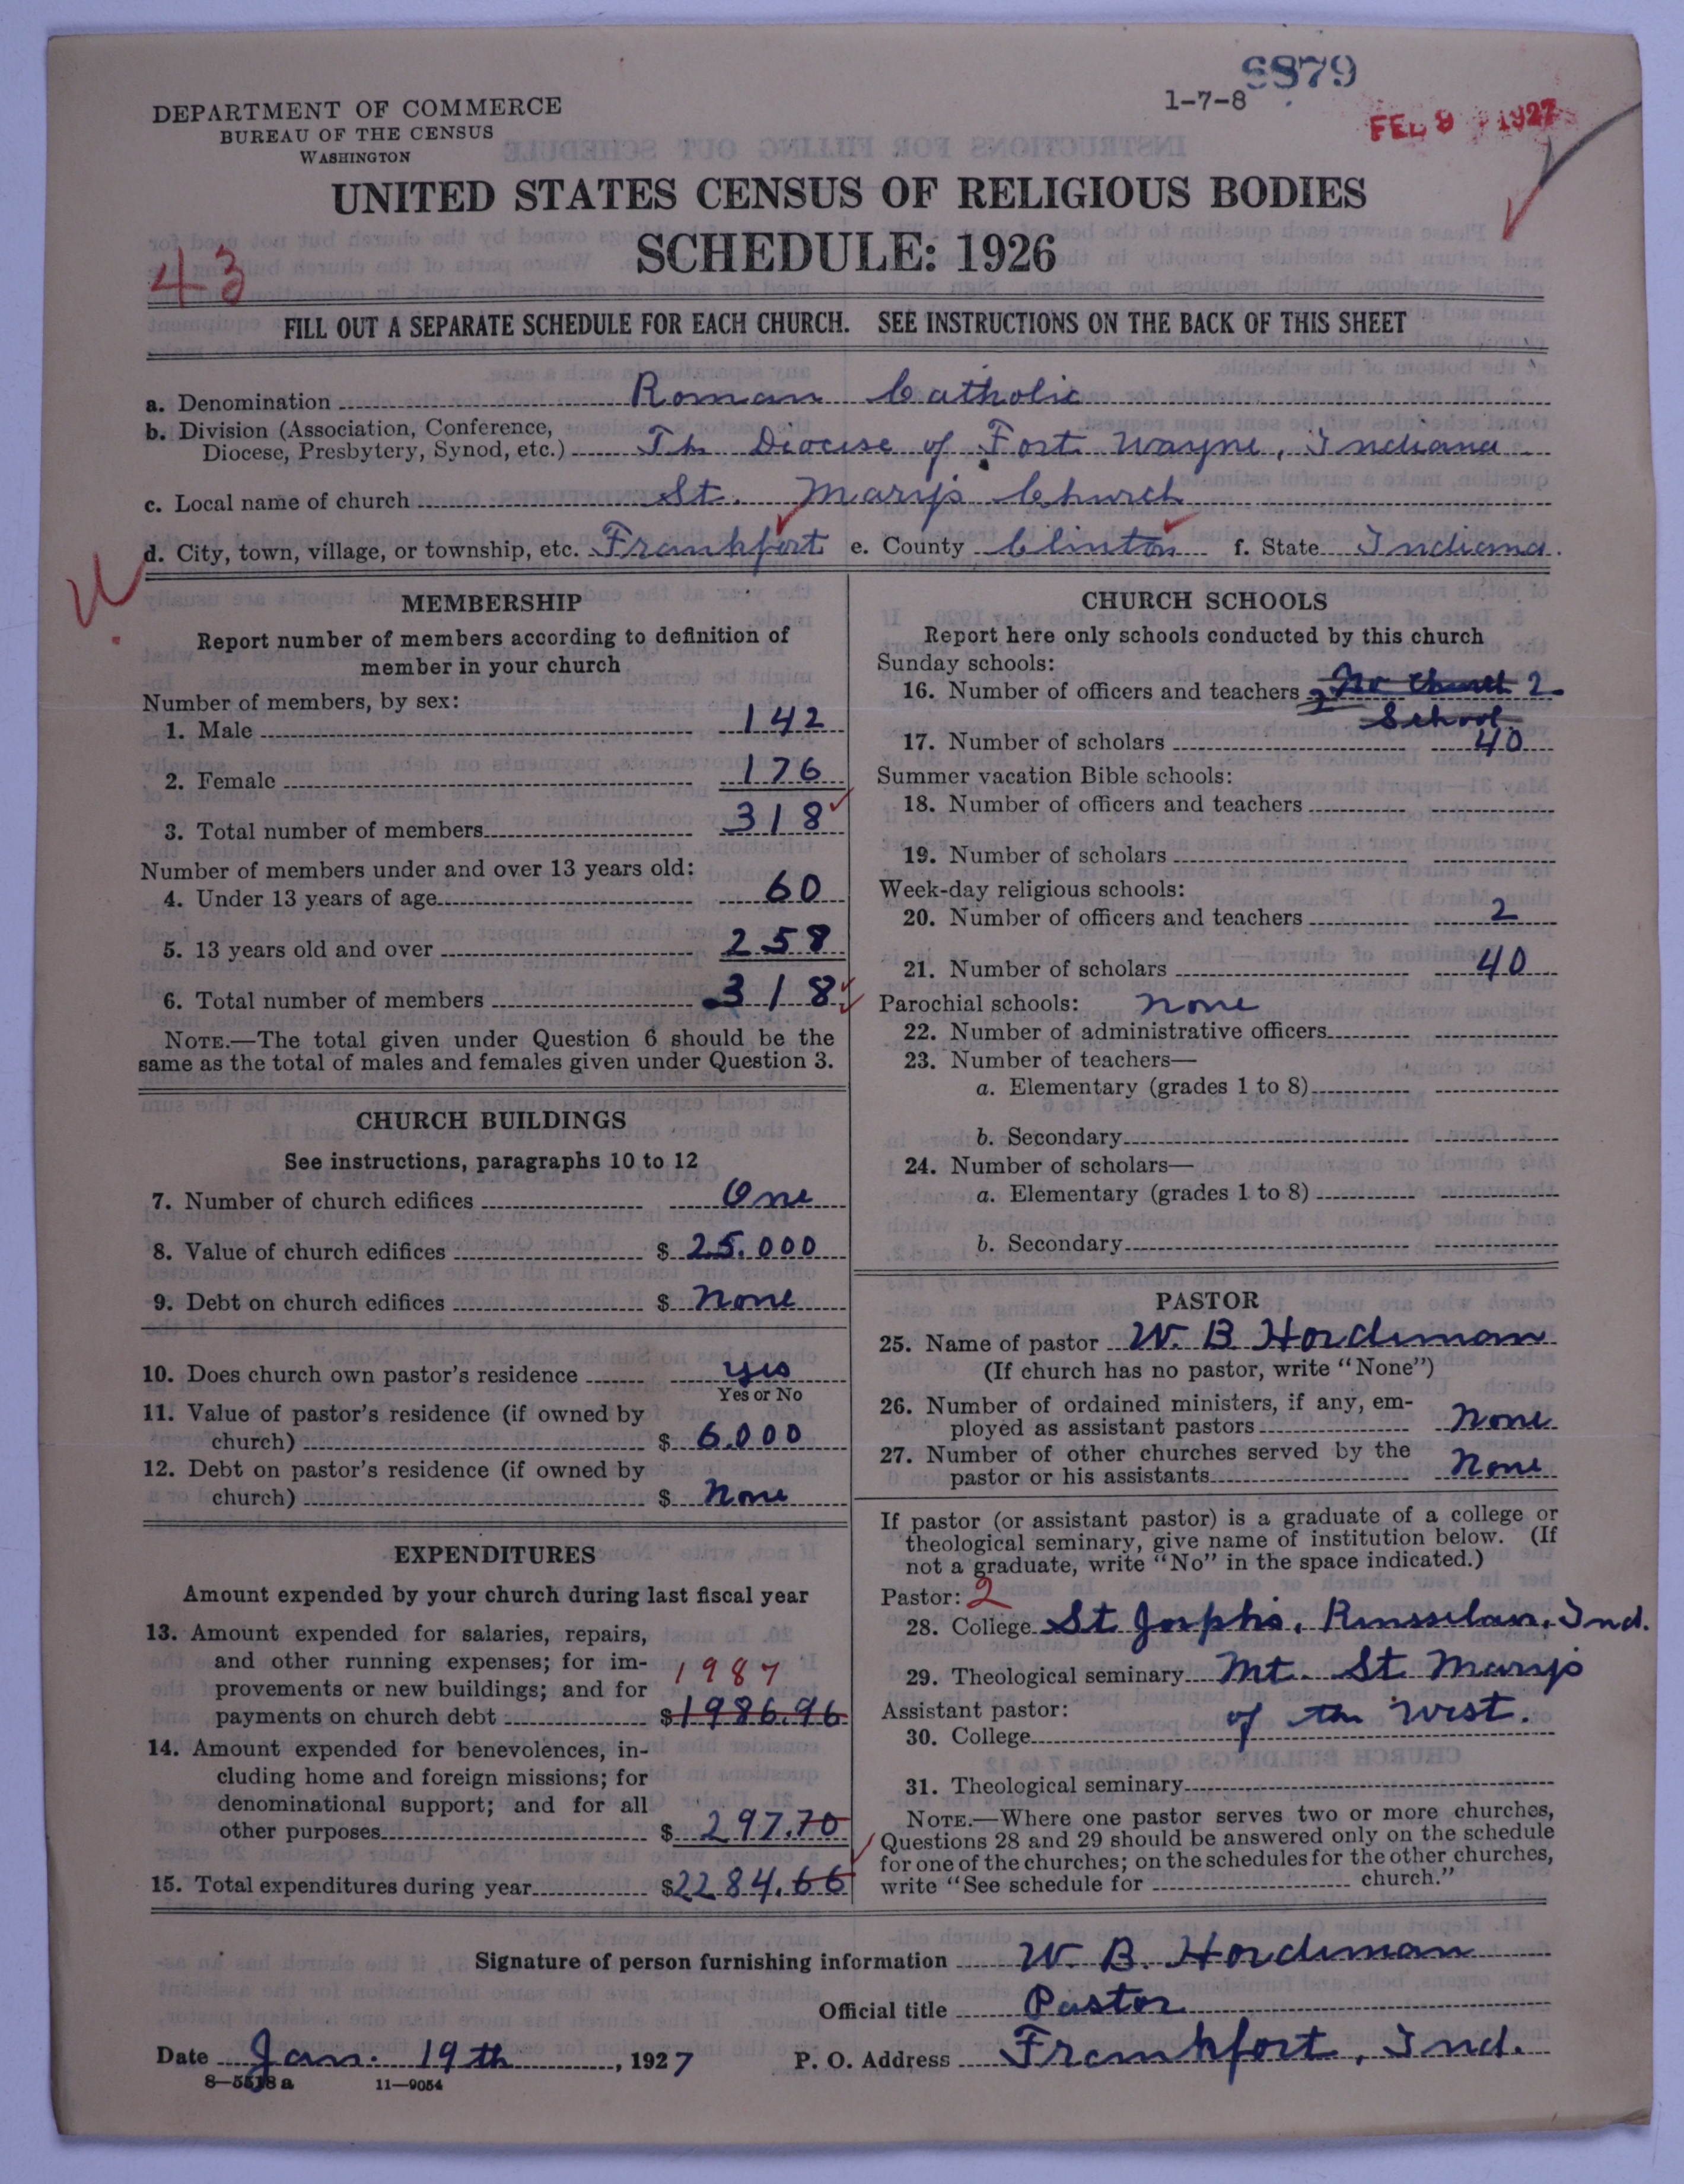 8879
1-7-8
FEB 9 1927
DEPARTMENT OF COMMERCE
BUREAU OF THE CENSUS
WASHINGTON
UNITED STATES CENSUS OF RELIGIOUS BODIES
SCHEDULE: 1926
43
FILL OUT A SEPARATE SCHEDULE FOR EACH CHURCH. SEE INSTRUCTIONS ON THE BACK OF THIS SHEET
a. Denomination Roman Catholic
b. Division (Association, Conference,
Diocese, Presbytery, Synod, etc.) The Diocese of Fort Wayne, Indiana
c. Local name of church St. Mary's Church
d. City, town, village, or township, etc. Frankfort e. County Clinton f. State Indiana.
MEMBERSHIP
Report number of members according to definition of
member in your church
Number of members, by sex:
1. Male 142
2. Female 176
3. Total number of members 318
Number of members under and over 13 years old:
4. Under 13 years of age 60
5. 13 years old and over 258
6. Total number of members 318
NOTE.—The total given under Question 6 should be the
same as the total of males and females given under Question 3.
CHURCH BUILDINGS
See instructions, paragraphs 10 to 12
7. Number of church edifices One
8. Value of church edifices $ 25.000
9. Debt on church edifices $ None
10. Does church own pastor's residence yes
Yes or No
11. Value of pastor's residence (if owned by
church) $ 6.000
12. Debt on pastor's residence (if owned by
church) $ None
EXPENDITURES
Amount expended by your church during last fiscal year
13. Amount expended for salaries, repairs,
and other running expenses; for im-
provements or new buildings; and for 1987
payments on church debt $1986.96
14. Amount expended for benevolences, in-
cluding home and foreign missions; for
denominational support; and for all
other purposes $ 297.70
15. Total expenditures during year $2284.66
CHURCH SCHOOLS
Report here only schools conducted by this church
Sunday schools:
16. Number of officers and teachers 2 No Church 2
School
17. Number of scholars 40
Summer vacation Bible schools:
18. Number of officers and teachers
19. Number of scholars
Week-day religious schools:
20. Number of officers and teachers 2
21. Number of scholars 40
Parochial schools: None
22. Number of administrative officers
23. Number of teachers—
a. Elementary (grades 1 to 8)
b. Secondary
24. Number of scholars—
a. Elementary (grades 1 to 8)
b. Secondary
PASTOR
25. Name of pastor W. B. Hordeman
(If church has no pastor, write "None")
26. Number of ordained ministers, if any, em-
ployed as assistant pastors None
27. Number of other churches served by the
pastor or his assistants None
If pastor (or assistant pastor) is a graduate of a college or
theological seminary, give name of institution below. (If
not a graduate, write "No" in the space indicated.)
Pastor: 2
28. College St Josephs, Rensselaer, Ind.
29. Theological seminary Mt. St Marys
Assistant pastor: of the West.
30. College
31. Theological seminary
NOTE.—Where one pastor serves two or more churches,
Questions 28 and 29 should be answered only on the schedule
for one of the churches; on the schedules for the other churches,
write "See schedule for church."
Signature of person furnishing information W. B. Hordeman
Official title Pastor
Date Jan. 19th, 1927 P. O. Address Frankfort, Ind.
8—5518a 11—9054